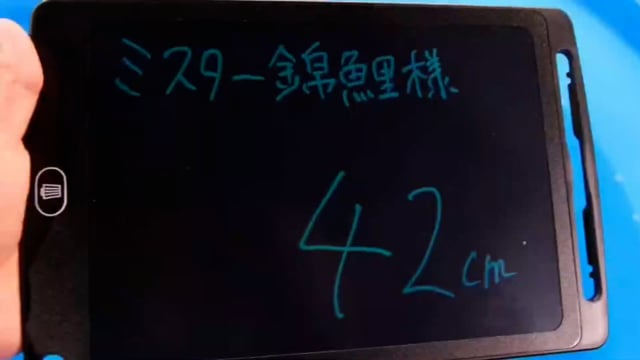 ミスター錦鯉様
42cm